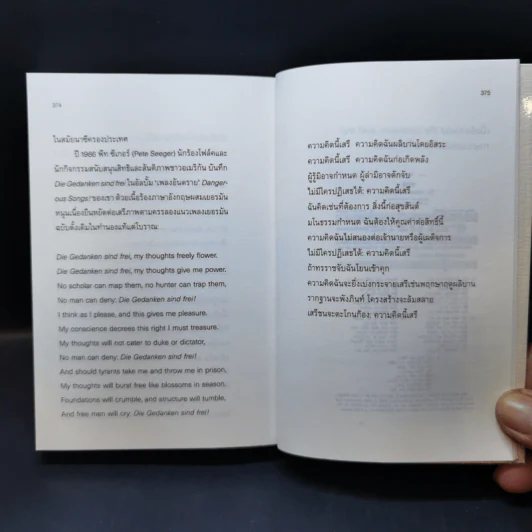 374
ในสมัยนาซีครองประเทศ
ปี 1966 พีท ซีเกอร์ (Pete Seeger) นักร้องโฟล์คและ
นักกิจกรรมสนับสนุนสิทธิและสันติภาพชาวอเมริกัน บันทึก
Die Gedanken sind frei ในอัลบั้ม 'เพลงอันตราย' Danger-
ous Songs! ของเขา ด้วยเนื้อร้องภาษาอังกฤษผสมเยอรมัน
หมุนเนื่องยืนหยัดต่อเสรีภาพตามครรลองแนวเพลงเยอรมัน
ฉบับดั้งเดิมในทำนองแท้แต่โบราณ
Die Gedanken sind frei, my thoughts freely flower,
Die Gedanken sind frei, my thoughts give me power.
No scholar can map them, no hunter can trap them,
No man can deny: Die Gedanken sind frei!
I think as I please, and this gives me pleasure.
My conscience decrees this right I must treasure.
My thoughts will not cater to duke or dictator,
No man can deny: Die Gedanken sind frei!
And should tyrants take me and throw me in prison,
My thoughts will burst free like blossoms in season.
Foundations will crumble, and structure will tumble,
And free men will cry: Die Gedanken sind frei!
375
ความคิดนี้เสรี ความคิดฉันผลิบานโดยอิสระ
ความคิดนี้เสรี ความคิดฉันก่อเกิดพลัง
ผู้รู้มิอาจกำหนด ผู้ล่ามิอาจดักจับ
ไม่มีใครปฏิเสธได้: ความคิดนี้เสรี
ฉันคิดเช่นที่ต้องการ สิ่งนี้ก่อสุขสันต์
มโนธรรมกำหนด ฉันต้องให้คุณค่าต่อสิทธิ์นี้
ความคิดฉันไม่สนองต่อเจ้านายหรือผู้เผด็จการ
ไม่มีใครปฏิเสธได้: ความคิดนี้เสรี
ถ้าทรราชจับฉันโยนเข้าคุก
ความคิดฉันจะยิ่งเบ่งกระจายเสรีเช่นพฤกษาฤดูผลิบาน
รากฐานจะพังภินท์ โครงสร้างจะล้มสลาย
เสรีชนจะตะโกนก้อง: ความคิดนี้เสรี